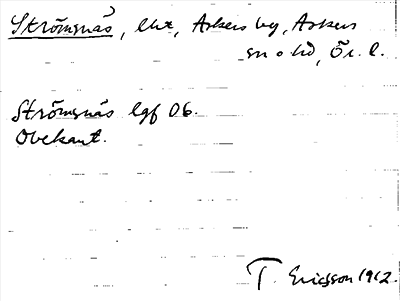 Strömsnäs, lht, Askers by, Askers
sn o hd, Ör. l.
Strömsnäs lgf 06.
Obekant.
T. Ericsson 1912.